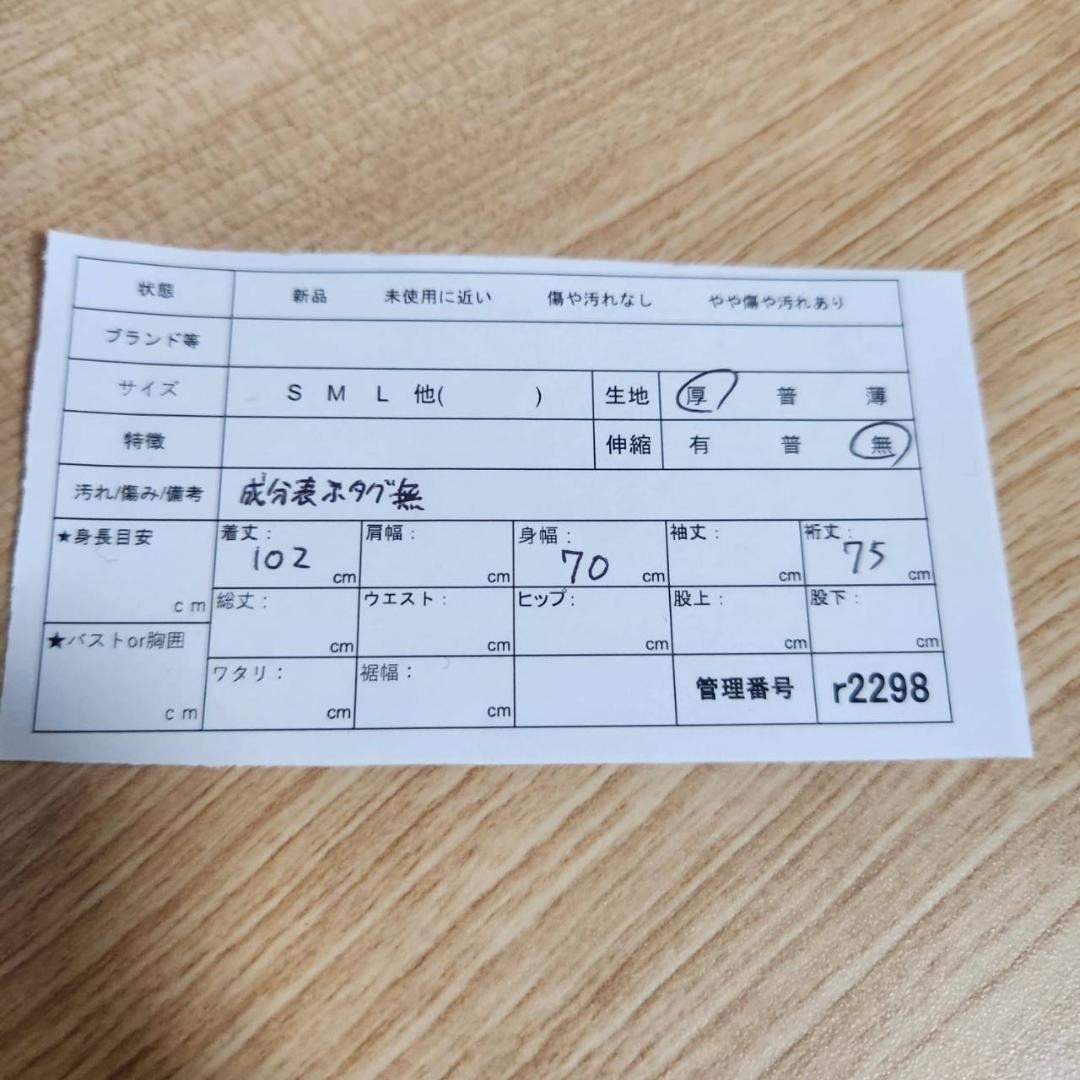 状態 新品 未使用に近い 傷や汚れなし やや傷や汚れあり
ブランド等
サイズ S M L 他( ) 生地 厚 普 薄
特徴 伸縮 有 普 無
汚れ/傷み/備考 成分表示タグ無
★身長目安 cm 着丈: 102 cm 肩幅: cm 身幅: 70 cm 袖丈: cm 裄丈: 75 cm
総丈: cm ウエスト: cm ヒップ: cm 股上: cm 股下: cm
★バストor胸囲 cm ワタリ: cm 裾幅: cm 管理番号 r2298